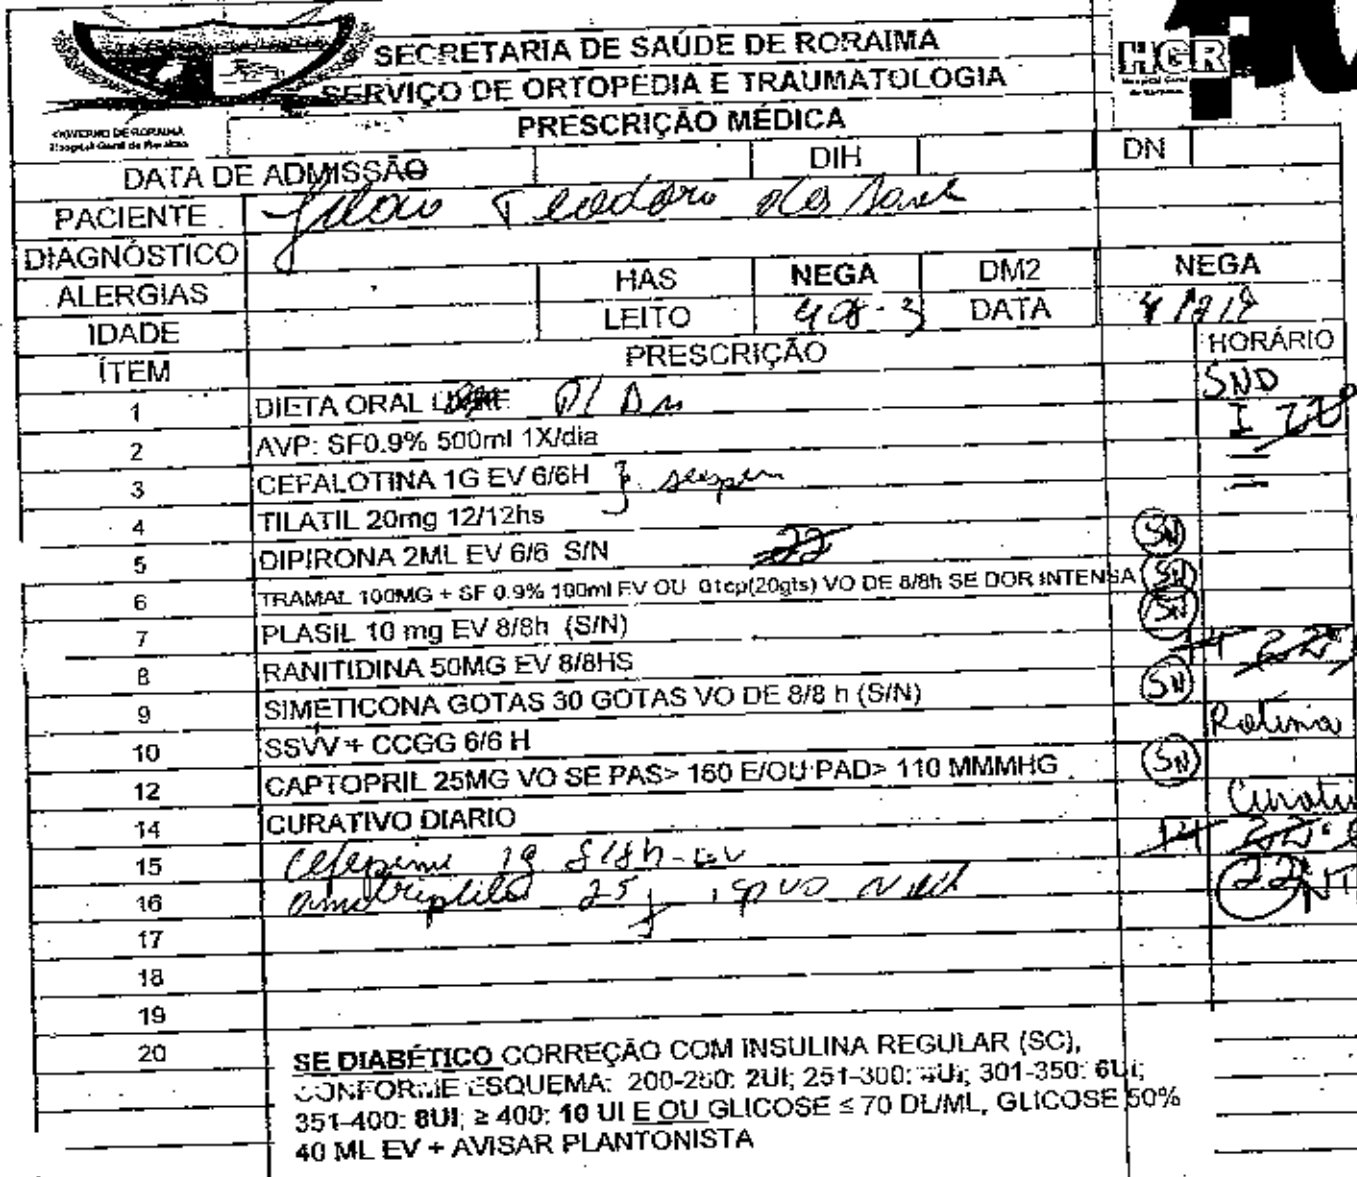 SECRETARIA DE SAÚDE DE RORAIMA
HGR
SERVIÇO DE ORTOPEDIA E TRAUMATOLOGIA
GOVERNO DE RORAIMA
PRESCRIÇÃO MÉDICA
DATA DE ADMISSÃO DIH DN
PACIENTE Teodoro dos
DIAGNÓSTICO
ALERGIAS HAS NEGA DM2 NEGA
IDADE LEITO 408-3 DATA
ÍTEM PRESCRIÇÃO HORÁRIO
1 DIETA ORAL P/ DM SND
2 AVP: SF0.9% 500ml 1X/dia I
3 CEFALOTINA 1G EV 6/6H
4 TILATIL 20mg 12/12hs
5 DIPIRONA 2ML EV 6/6 S/N 22 SN
6 TRAMAL 100MG + SF 0.9% 100ml EV OU 01cp(20gts) VO DE 8/8h SE DOR INTENSA SN
7 PLASIL 10 mg EV 8/8h (S/N) SN
8 RANITIDINA 50MG EV 8/8HS 14 22
9 SIMETICONA GOTAS 30 GOTAS VO DE 8/8 h (S/N) SN
10 SSVV + CCGG 6/6 H Rotina
12 CAPTOPRIL 25MG VO SE PAS> 160 E/OU PAD> 110 MMMHG SN
14 CURATIVO DIARIO
15 Cefepime 1g 8/8h-EV 14 22
16 25 22
17
18
19
20 SE DIABÉTICO CORREÇÃO COM INSULINA REGULAR (SC),
CONFORME ESQUEMA: 200-250: 2UI; 251-300: 4UI; 301-350: 6UI;
351-400: 8UI; ≥ 400: 10 UI E OU GLICOSE ≤ 70 DL/ML, GLICOSE 50%
40 ML EV + AVISAR PLANTONISTA